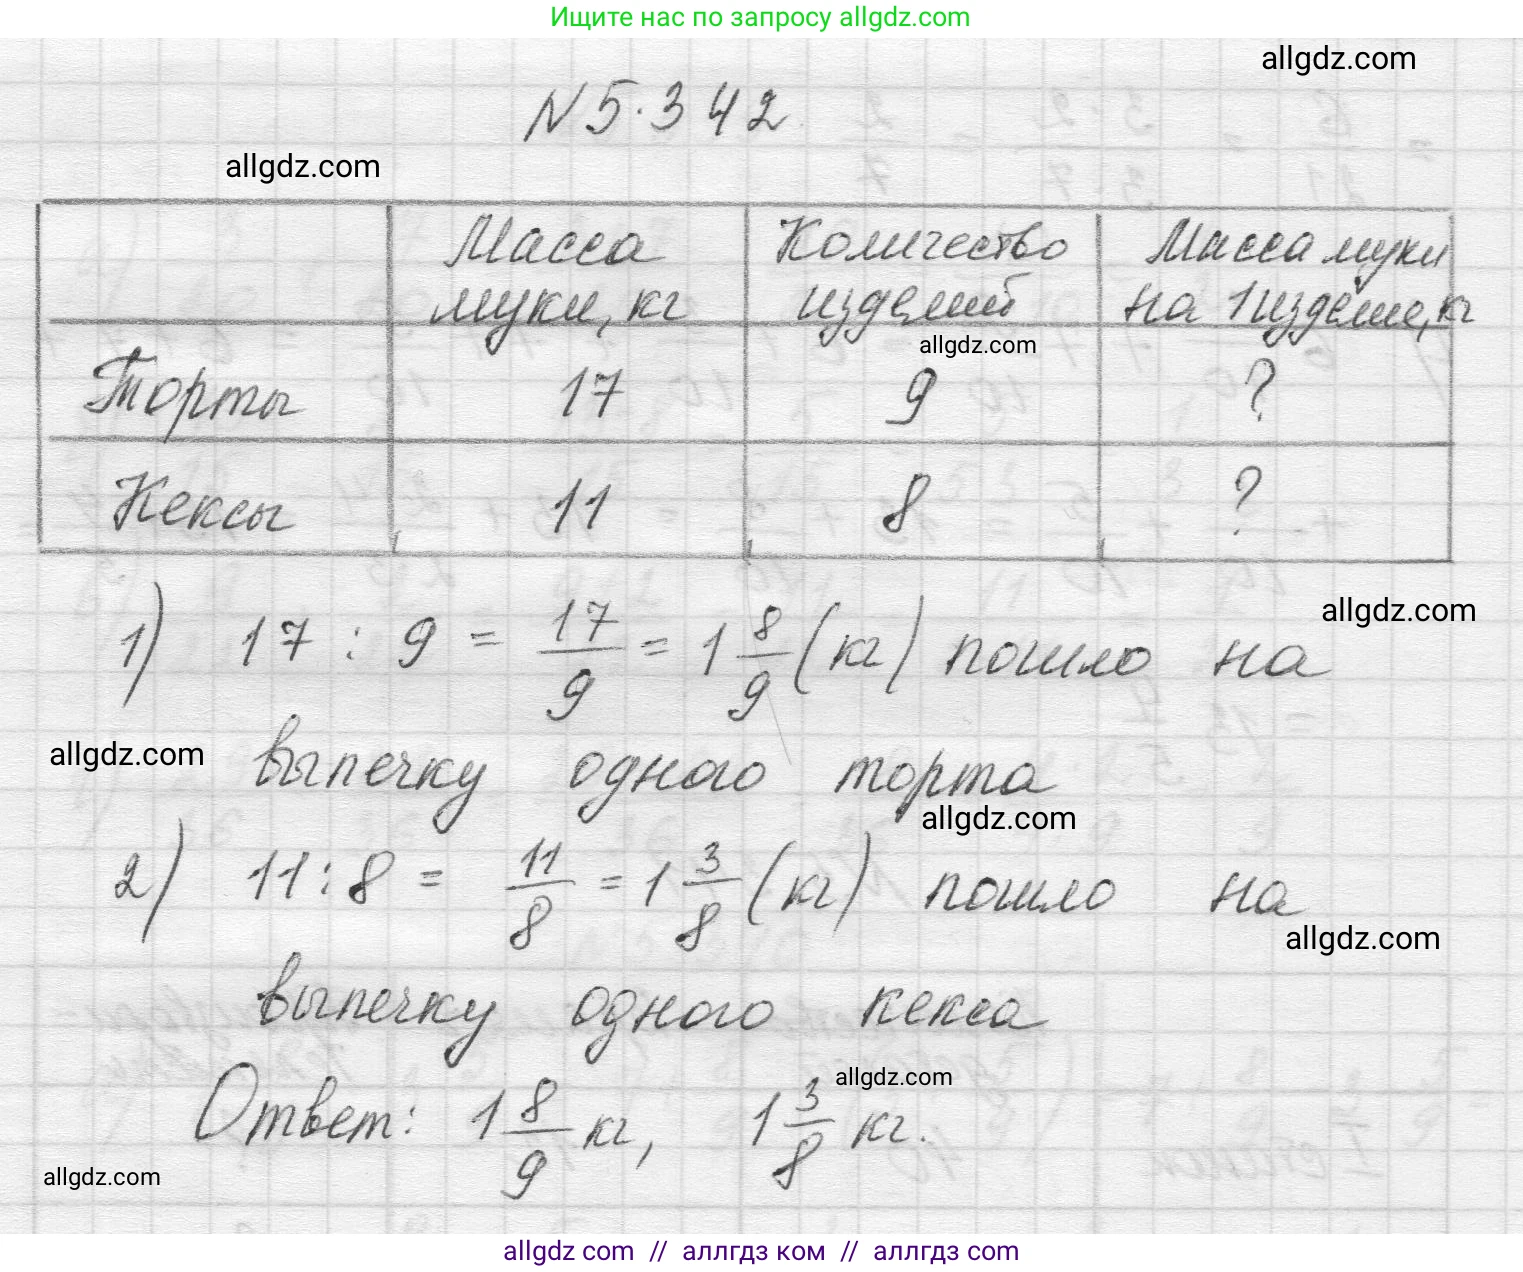 Ищите нас по запросу allgdz.com
allgdz.com
N 5.342
allgdz.com
Масса муки, кг Количество изделий Масса муки на 1 изделие, кг
allgdz.com
Торты 17 9 ?
Кексы 11 8 ?
allgdz.com
1) 17 : 9 = 17/9 = 1 8/9 (кг) пошло на
allgdz.com
выпечку одного торта
allgdz.com
2) 11 : 8 = 11/8 = 1 3/8 (кг) пошло на
allgdz.com
выпечку одного кекса
allgdz.com
Ответ: 1 8/9 кг, 1 3/8 кг.
allgdz.com
allgdz com // аллгдз ком // аллгдз com